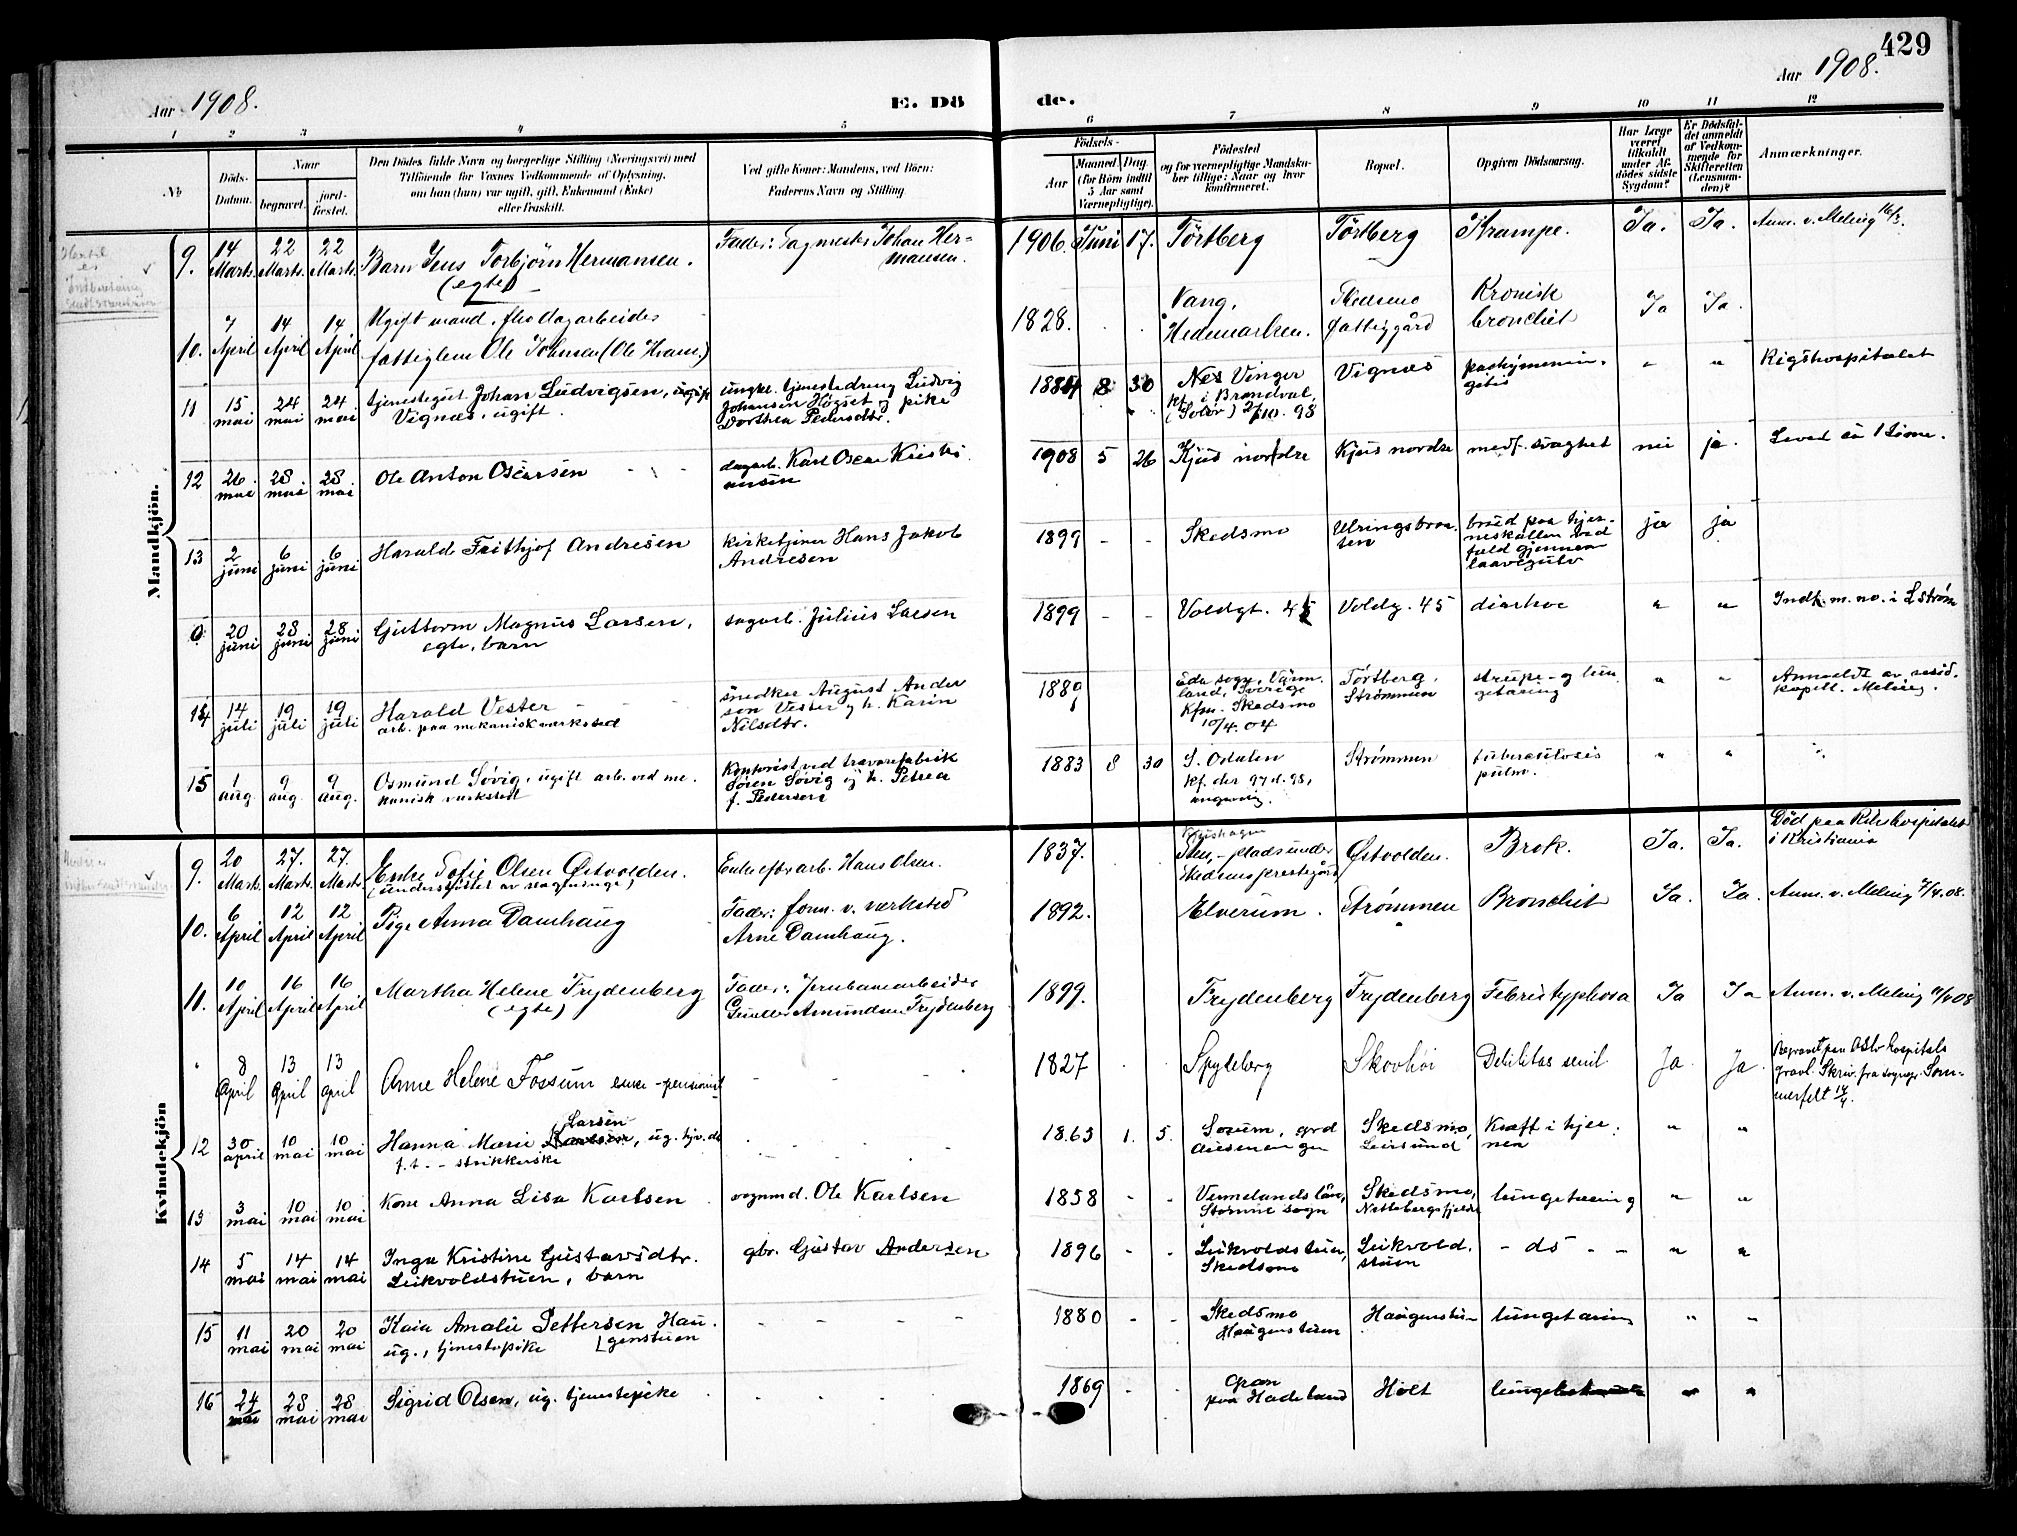 429
Aar 1908.
E. Dö
de.
Aar 1908.
1 2 3 4 5 6 7 8 9 10 11 12
No
Döds-
Datum.
Naar
begravet.
jord-
fæstet.
Den Dödes fulde Navn og borgerlige Stilling (Næringsvei) med
Tilföiende for Voxnes Vedkommende af Oplysning,
om han (hun) var ugift, gift, Enkemand (Enke)
eller fraskilt.
Ved gifte Koner: Mandens, ved Börn:
Faderens Navn og Stilling.
Födsels-
Aar
Maaned. Dag.
(for Börn indtil
5 Aar samt
Værnepligtige).
Födested
og for værnepligtige Mandskaber tillige: Naar og hvor
konfirmeret.
Bopæl.
Opgiven Dödsaarsag.
Har Læge
været
tilkaldt
under Af-
dödes sidste
Sygdom?
Er Dödsfal-
det anmeldt
af Vedkom-
mende for
Skifteretten
(Lensman-
den)?
Anmærkninger.
Mandkjön.
9. 14 Marts. 22 Marts. 22 Marts. Barn Jens Torbjørn Hermansen. (egte) Fader: Tagmester Johan Hermansen. 1906. Juni 17. Törtberg Törtberg Krampe. Ja. Ja. Anm. v. Meling 16/3.
10. 7 April 14 April 14 April Ugift mand, fhv dagarbeider fattiglem Ole Johnsen (Ole Kram.) 1828. Vang, Hedemarken. Skedsmo fattiggård Kronisk bronchit Ja Ja.
11 15 mai 24 mai 24 mai tjenestegut Johan Ludvigsen, Vignæs, ugift. ungk. tjenestedreng Ludvig Johansen Högset og pike Dorthea Pedersdtr. 1884 8 30 Nes Vinger kf. i Brandval, (Solör) 2/10. 98 Vignæs pachymeningitis " " Rigshospitalet
12 26 mai 28 mai 28 mai Ole Anton Oscarsen dagarb. Karl Oscar Kristiansen 1908 5 26 Kjus nordre Kjus nordre medf. svaghet nei ja. Leved ca 1 time.
13 2 juni 6 juni 6 juni Harald Frithjof Andresen kirketjener Hans Jakob Andresen 1899 - - Skedsmo Ulringsbraaten brud paa hjerneskallen ved fald gjennem laavegulv ja ja
0: 20 juni 28 juni 28 juni Guttorm Magnus Larsen, egte, barn sagarb. Julius Larsen 1899 - - Voldgt. 45 Voldg. 45 diarhoe " " Indf. m. no. i Lstrøm
14 14 juli 19 juli 19 juli Harald Vester arb. paa mekanisk værksted snedker August Anderson Vester og h. Karin Nilsdtr. 1889 Eda sogn, Värmland, Sverige Kfm. Skedsmo 10/4. 04 Törtberg, Strömmen strupe- og lungetæring " " Anmeldt av resid. kapell. Meling.
15 1 aug. 9 aug. 9 aug. Osmund Søvig, ugift arb. ved mekanisk værksted Kontorist ved trævarefabrik Sören Søvig og h. Petrea f. Pedersen 1883 8 30 S. Odalen kf. der 97 d. 98, Strømmen tuberculosis pulm. " " "
Kvindekjön
9. 20 Marts. 27. Marts. 27. Marts. Enke Sofie Olsen Østvolden. (understøttet av sagninge) Enke efter arb. Hans Olsen. 1837. plads under Skedsmo prestegård Østvolden. Brok. Ja. Ja. Död paa Rikshospitalet i Kristiania
10. 6 April 12 April 12 April Pige Anna Damhaug Fader: form. v. værksted Arne Damhaug. 1892. Elverum. Strømmen Bronchit Ja. Ja. Anm. v. Meling 7/4. 08.
11. 10 April 16 April 16 April Martha Helene Frydenberg (egte) Fader: Jernbanearbeider Gunder Amundsen Frydenberg 1899. Frydenberg Frydenberg Febris typhosa Ja Ja Anm. v. Meling 11/4 08
" 8 April 13 April 13 April Anne Helene Fossum enke - pensionist 1827 Spydeberg Skovhöi Debilitas senil Ja Ja Begravet paa Oslo hospitals gravl. Skriv. fra sognepr. Sommerfelt 14/4.
12 30 april 10 mai 10 mai Hanna Marie Larsen, ug. hjv. ds f.t. - strikkerske 1863 1. 5. Sörum, grd Skedsmo, Leirsund Kræft i hjernen " "
13 3 mai 10 mai 10 mai Kone Anna Lisa Karlsen vognmd. Ole Karlsen 1858 - - Vermlandslän, Stömne sogn Skedsmo, Nittebergsfjeldet lungetæring " "
14 5 mai 14 mai 14 mai Inga Kristine Gustavsdtr. Leikvoldstuen, barn gbr. Gustav Andersen 1896 - - Leikvoldstuen, Skedsmo Leikvoldstuen - do - - " "
15 11 mai 20 mai 20 mai Kaia Amalie Pettersen Haugenstuen ug., tjenestepike 1880 - - Skedsmo Haugenstuen Haugenstu- lungetæring " "
16 24 mai 28 mai 28 mai Sigrid Olsen, ug. tjenestepike 1869 - - Gran paa Hadeland Holt " "